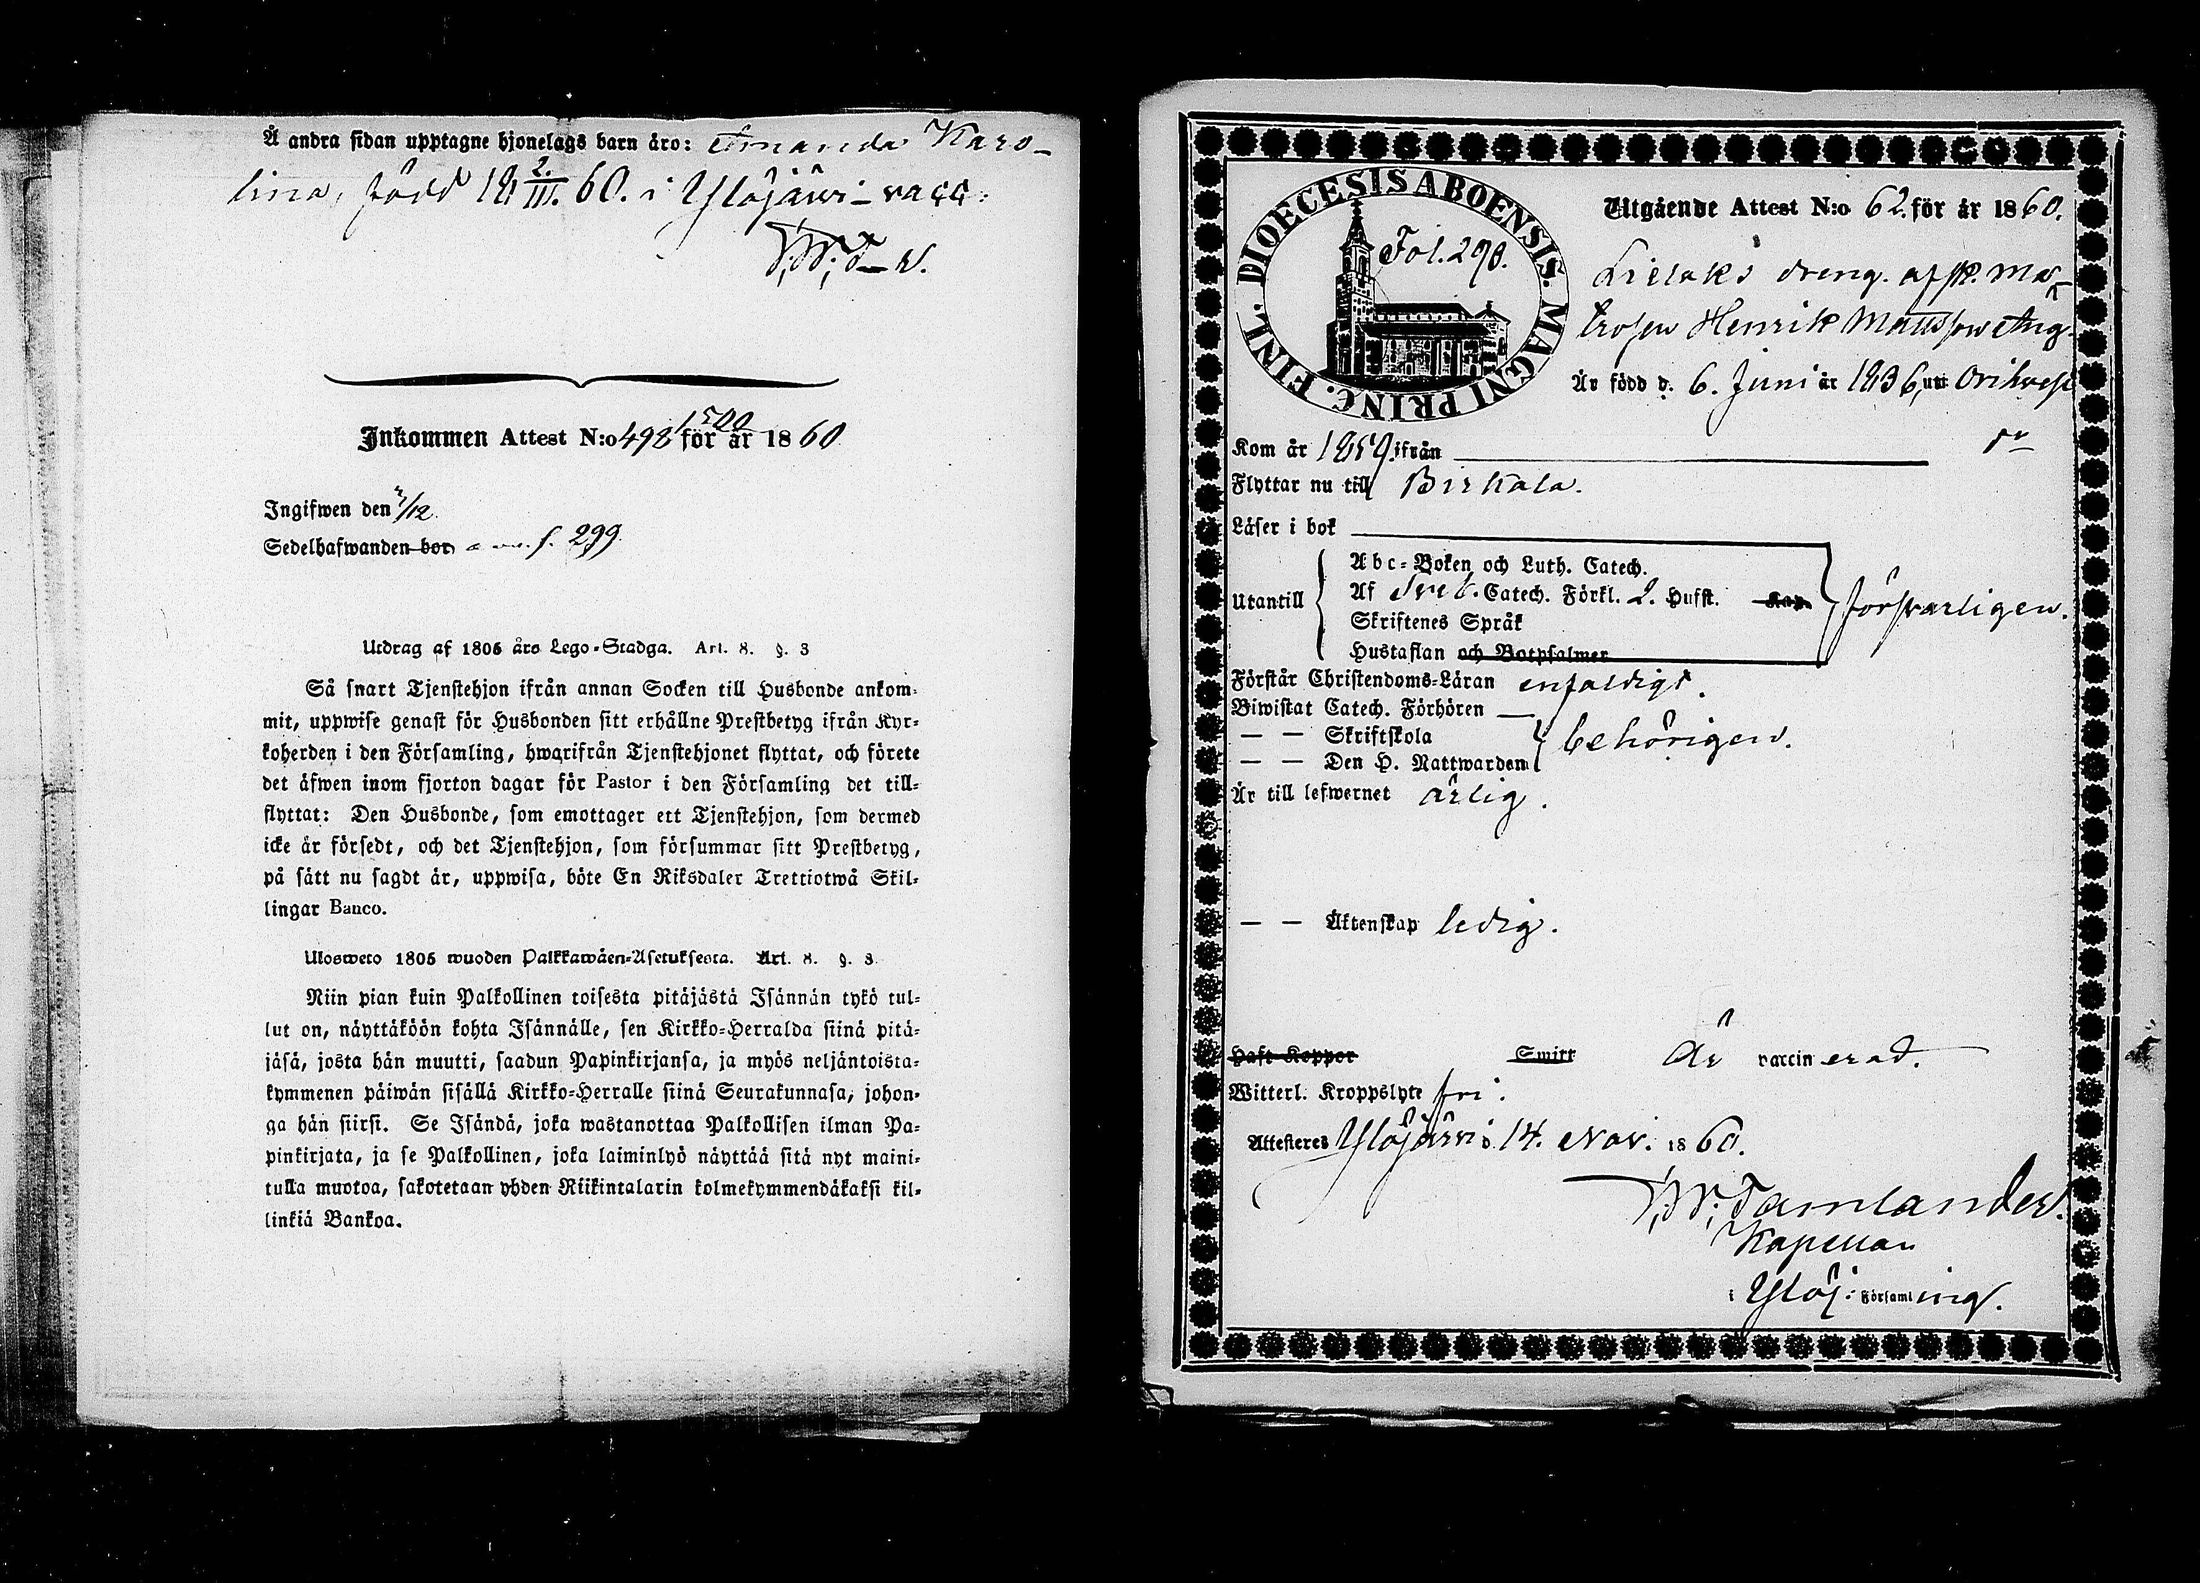 Å andra sidan upptagne hjonelags barn äro: Amanda Karo-
lina, född 18 2./III. 60. i Ylöjärvi - vacc:
Inkommen Attest N:o 498 1500 för år 1860
Ingifwen den /12
Sedelhafwanden bor f. 299
Utdrag af 1805 års Lego-Stadga. Art. 8. §. 3
Så snart Tjenstehjon ifrån annan Socken till Husbonde ankom-
mit, uppwise genast för Husbonden sitt erhållne Prestbetyg ifrån Kyr-
koherden i den Församling, hwarifrån Tjenstehjonet flyttat, och förete
det äfwen inom fjorton dagar för Pastor i den Församling det till-
flyttat: Den Husbonde, som emottager ett Tjenstehjon, som dermed
icke är försedt, och det Tjenstehjon, som försummar sitt Prestbetyg,
på sätt nu sagdt är, uppwisa, böte En Riksdaler Trettiotwå Skil-
lingar Banco.
Ulosweto 1805 wuoden Palkkawäen-Asetuksesta. Art. 8. §. 3
Niin pian kuin Palkollinen toisesta pitäjästä Isännän tykö tul-
lut on, näyttäköön kohta Isännälle, sen Kirkko-Herralda siinä pitä-
jäsä, josta hän muutti, saadun Papinkirjansa, ja myös neljäntoista-
kymmenen päiwän sisällä Kirkko-Herralle siinä Seurakunnasa, johon-
ga hän siirsi. Se Isändä, joka wastanottaa Palkollisen ilman Pa-
pinkirjata, ja se Palkollinen, joka laiminlyö näyttää sitä nyt maini-
tulla muotoa, sakotetaan yhden Riikintalarin kolmekymmendäkaksi kil-
linkiä Bankoa.
FINL. DIOECESIS ABOENSIS. MAGNI PRINC.
Fol. 290.
Utgående Attest N:o 62. för år 1860.
Lielaks dreng. afsk. ma-
trosen Henrik Mattsson Aug.
Är född d. 6. Juni år 1836, uti Orihvesi
Kom år 1859. ifrån
Flyttar nu till Birkala.
Läser i bok
Utantill
Abc-Boken och Luth. Catech.
Af Sveb. Catech. Förkl. 2. Hufst. Kap.
Skriftenes Språk
Hustaflan och Botpsalmer
försvarligen.
Förstår Christendoms-Läran enfaldigt.
Biwistat Catech. Förhören
— — Skriftskola
— — Den H. Nattwarden
behörigen.
Är till lefwernet ärlig.
— — Äktenskap ledig.
Haft Koppor Smitt Är vaccinerad.
Witterl. Kroppslyte fri.
Attesteres Ylöjärvi d. 14. Nov. 1860.
Tamlander.
Kapellan
i Ylöj: Församling.